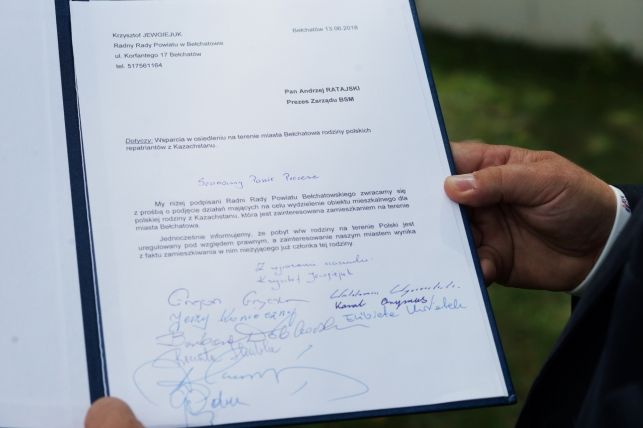 Krzysztof JEWGIEJUK
Radny Rady Powiatu w Bełchatowie
ul. Korfantego 17 Bełchatów
tel. 517561164
Bełchatów 13.06.2018
Pan Andrzej RATAJSKI
Prezes Zarządu BSM
Dotyczy: Wsparcia w osiedleniu na terenie miasta Bełchatowa rodziny polskich
repatriantów z Kazachstanu.
Szanowny Panie Prezesie
My niżej podpisani Radni Rady Powiatu Bełchatowskiego zwracamy się
z prośbą o podjęcie działań mających na celu wydzielenie obiektu mieszkalnego dla
polskiej rodziny z Kazachstanu, która jest zainteresowana zamieszkaniem na terenie
miasta Bełchatowa.
Jednocześnie informujemy, że pobyt w/w rodziny na terenie Polski jest
uregulowany pod względem prawnym, a zainteresowanie naszym miastem wynika
z faktu zamieszkiwania w nim nieżyjącego już członka tej rodziny.
Z wyrazami szacunku
Krzysztof Jewgiejuk
Jerzy Konieczny
Barbara
Karol
Elżbieta